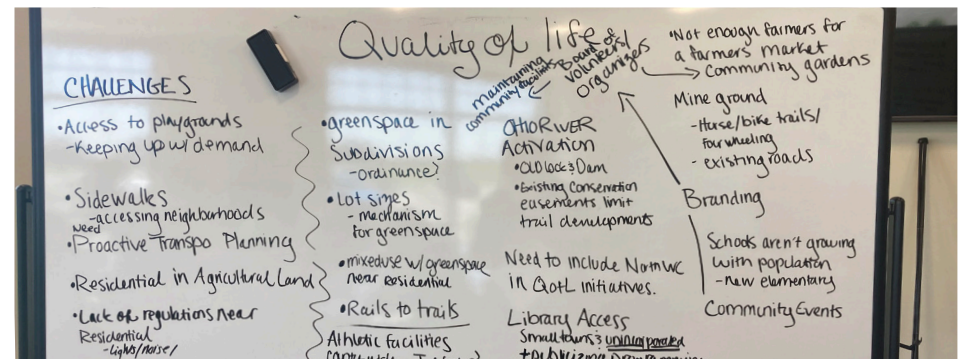 Quality of life
CHALLENGES
•Access to playgrounds
-Keeping up w/ demand
•Sidewalks
-accessing neighborhoods
Need
•Proactive Transpo Planning
•Residential in Agricultural Land
•Lack of regulations near
Residential
-lights/noise/
•greenspace in
Subdivisions
-ordinance?
•Lot sizes
- mechanism
for greenspace
•mixed use w/ greenspace
near residential
•Rails to trails
Athletic facilities
maintaining
community facilities
Board of
volunteers/
organizers
OHIO RIVER
Activation
•OLD lock & Dam
•Existing Conservation
easements limit
trail developments
Need to include North WC
in QotL initiatives.
Library Access
Small towns & unincorporated
•Not enough farmers for
a farmers market
Community gardens
Mine ground
-Horse/bike trails/
four wheeling
- existing roads
Branding
Schools aren't growing
with population
-new elementary
Community Events